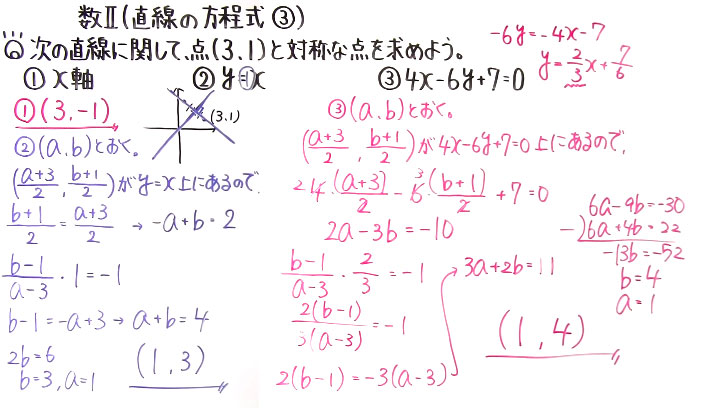 数Ⅱ(直線の方程式③)
次の直線に関して、点(3,1)と対称な点を求めよう。
① x軸 ② y=x ③ 4x-6y+7=0
-6y=-4x-7
y=2/3x+7/6
① (3,-1)
(3,1)
② (a,b)とおく。
(a+3/2, b+1/2)がy=x上にあるので、
b+1/2=a+3/2 → -a+b=2
b-1/a-3・1=-1
b-1=-a+3 → a+b=4
2b=6
b=3, a=1
(1,3)
③ (a,b)とおく。
(a+3/2, b+1/2)が4x-6y+7=0上にあるので、
2 4・(a+3)/2-3 6・(b+1)/2+7=0
2a-3b=-10
b-1/a-3・2/3=-1
2(b-1)/3(a-3)=-1
2(b-1)=-3(a-3)
3a+2b=11
6a-9b=-30
-)6a+4b=22
-13b=-52
b=4
a=1
(1,4)